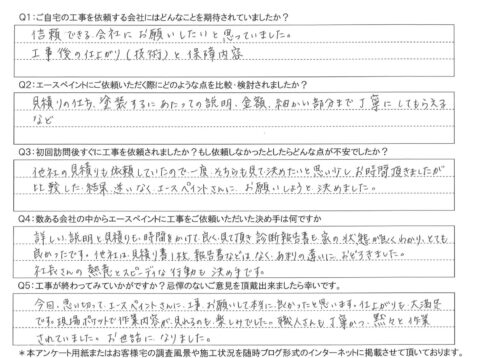 Q1：ご自宅の工事を依頼する会社にはどんなことを期待されていましたか？
信頼できる会社にお願いしたいと思っていました。
工事後の仕上がり(技術)と保障内容
Q2：エースペイントにご依頼いただく際にどのような点を比較・検討されましたか？
見積りの仕方、塗装するにあたっての説明、金額、細かい部分まで丁寧にしてもらえる
など
Q3：初回訪問後すぐに工事を依頼されましたか？もし依頼しなかったとしたらどんな点が不安でしたか？
他社の見積りも依頼していたので一度、そちらも見て決めたいと思い少しお時間頂きましたが
比較した結果迷いなくエースペイントさんにお願いしようと決めました。
Q4：数ある会社の中からエースペイントに工事をご依頼いただいた決め手は何ですか
詳しい説明と見積りも、時間をかけて良く見て頂き診断報告書も家の状態が良くわかり、とても
良かったです。他社は見積り書1枚、報告書などはなく、あまりの違いに、おどろきました。
社長さんの熱意とスピーディな行動も決め手です。
Q5：工事が終わってみていかがですか？忌憚のないご意見を頂戴出来ましたら幸いです。
今回、思い切って、エースペイントさんに、工事、お願いして本当に良かったと思います。仕上がりも大満足
です。現場ポケットで作業内容が、見れるのも、楽しみでした。職人さんも丁寧かつ、黙々と作業
されていました。お世話になりました。
＊本アンケート用紙またはお客様宅の調査風景や施工状況を随時ブログ形式のインターネットに掲載させて頂いております。